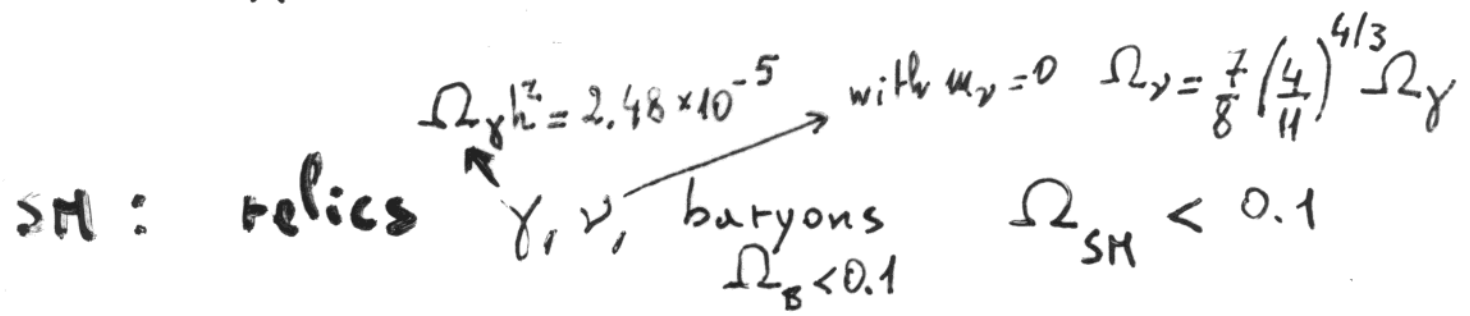 Ω_γ h² = 2.48 × 10⁻⁵ with m_ν = 0 Ω_ν = 7/8 (4/11)^{4/3} Ω_γ
SM : relics γ, ν, baryons Ω_SM < 0.1
Ω_B < 0.1